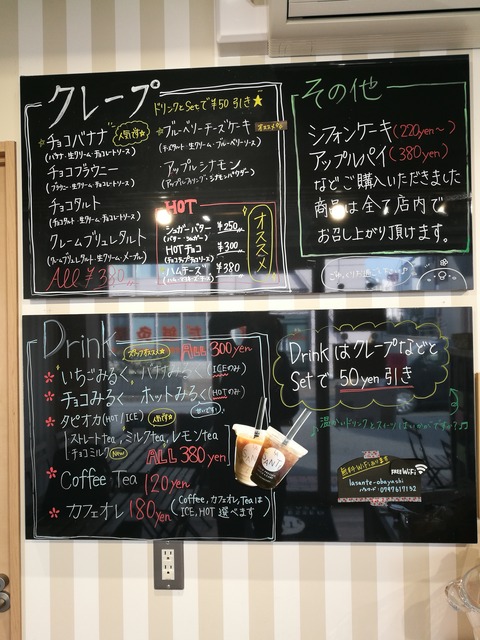 クレープ
ドリンクとSetで¥50引き★
チョコバナナ 人気です☆
(バナナ・生クリーム・チョコレートソース)
チョコブラウニー
(ブラウニー・生クリーム・チョコレートソース)
チョコタルト
(チョコタルト・生クリーム・チョコレートソース)
クレームブリュレタルト
(クレームブリュレタルト・生クリーム・メープル)
All ¥380
ブルーベリーチーズケーキ オススメ
(チーズケーキ・生クリーム・ブルーベリーソース)
アップルシナモン
(アップルスプリング・シナモンパウダー)
HOT
シュガーバター ¥250
(バター・シュガー)
HOTチョコ ¥300
ハムチーズ ¥380
オススメ
その他
シフォンケーキ(220yen〜)
アップルパイ(380yen)
などご購入いただきました
商品は全て店内で
お召し上がり頂けます。
Drink
スタッフオススメ★ All 300yen
いちごみるく、バナナみるく(ICEのみ)
チョコみるく、ホットみるく(HOTのみ)
タピオカ(HOT/ICE) 人気です
ストレートtea,ミルクtea,レモンtea
チョコミルク New ALL 380yen
Coffee、Tea 120yen
カフェオレ 180yen (Coffee,カフェオレ,Teaは
ICE,HOT選べます)
Drinkはクレープなどと
Setで50yen引き
♪温かいドリンクとスイーツはいかがですか?♫
無料Wifiあります
FREE WiFi
lasante-obayashi
パスワード:0797617192